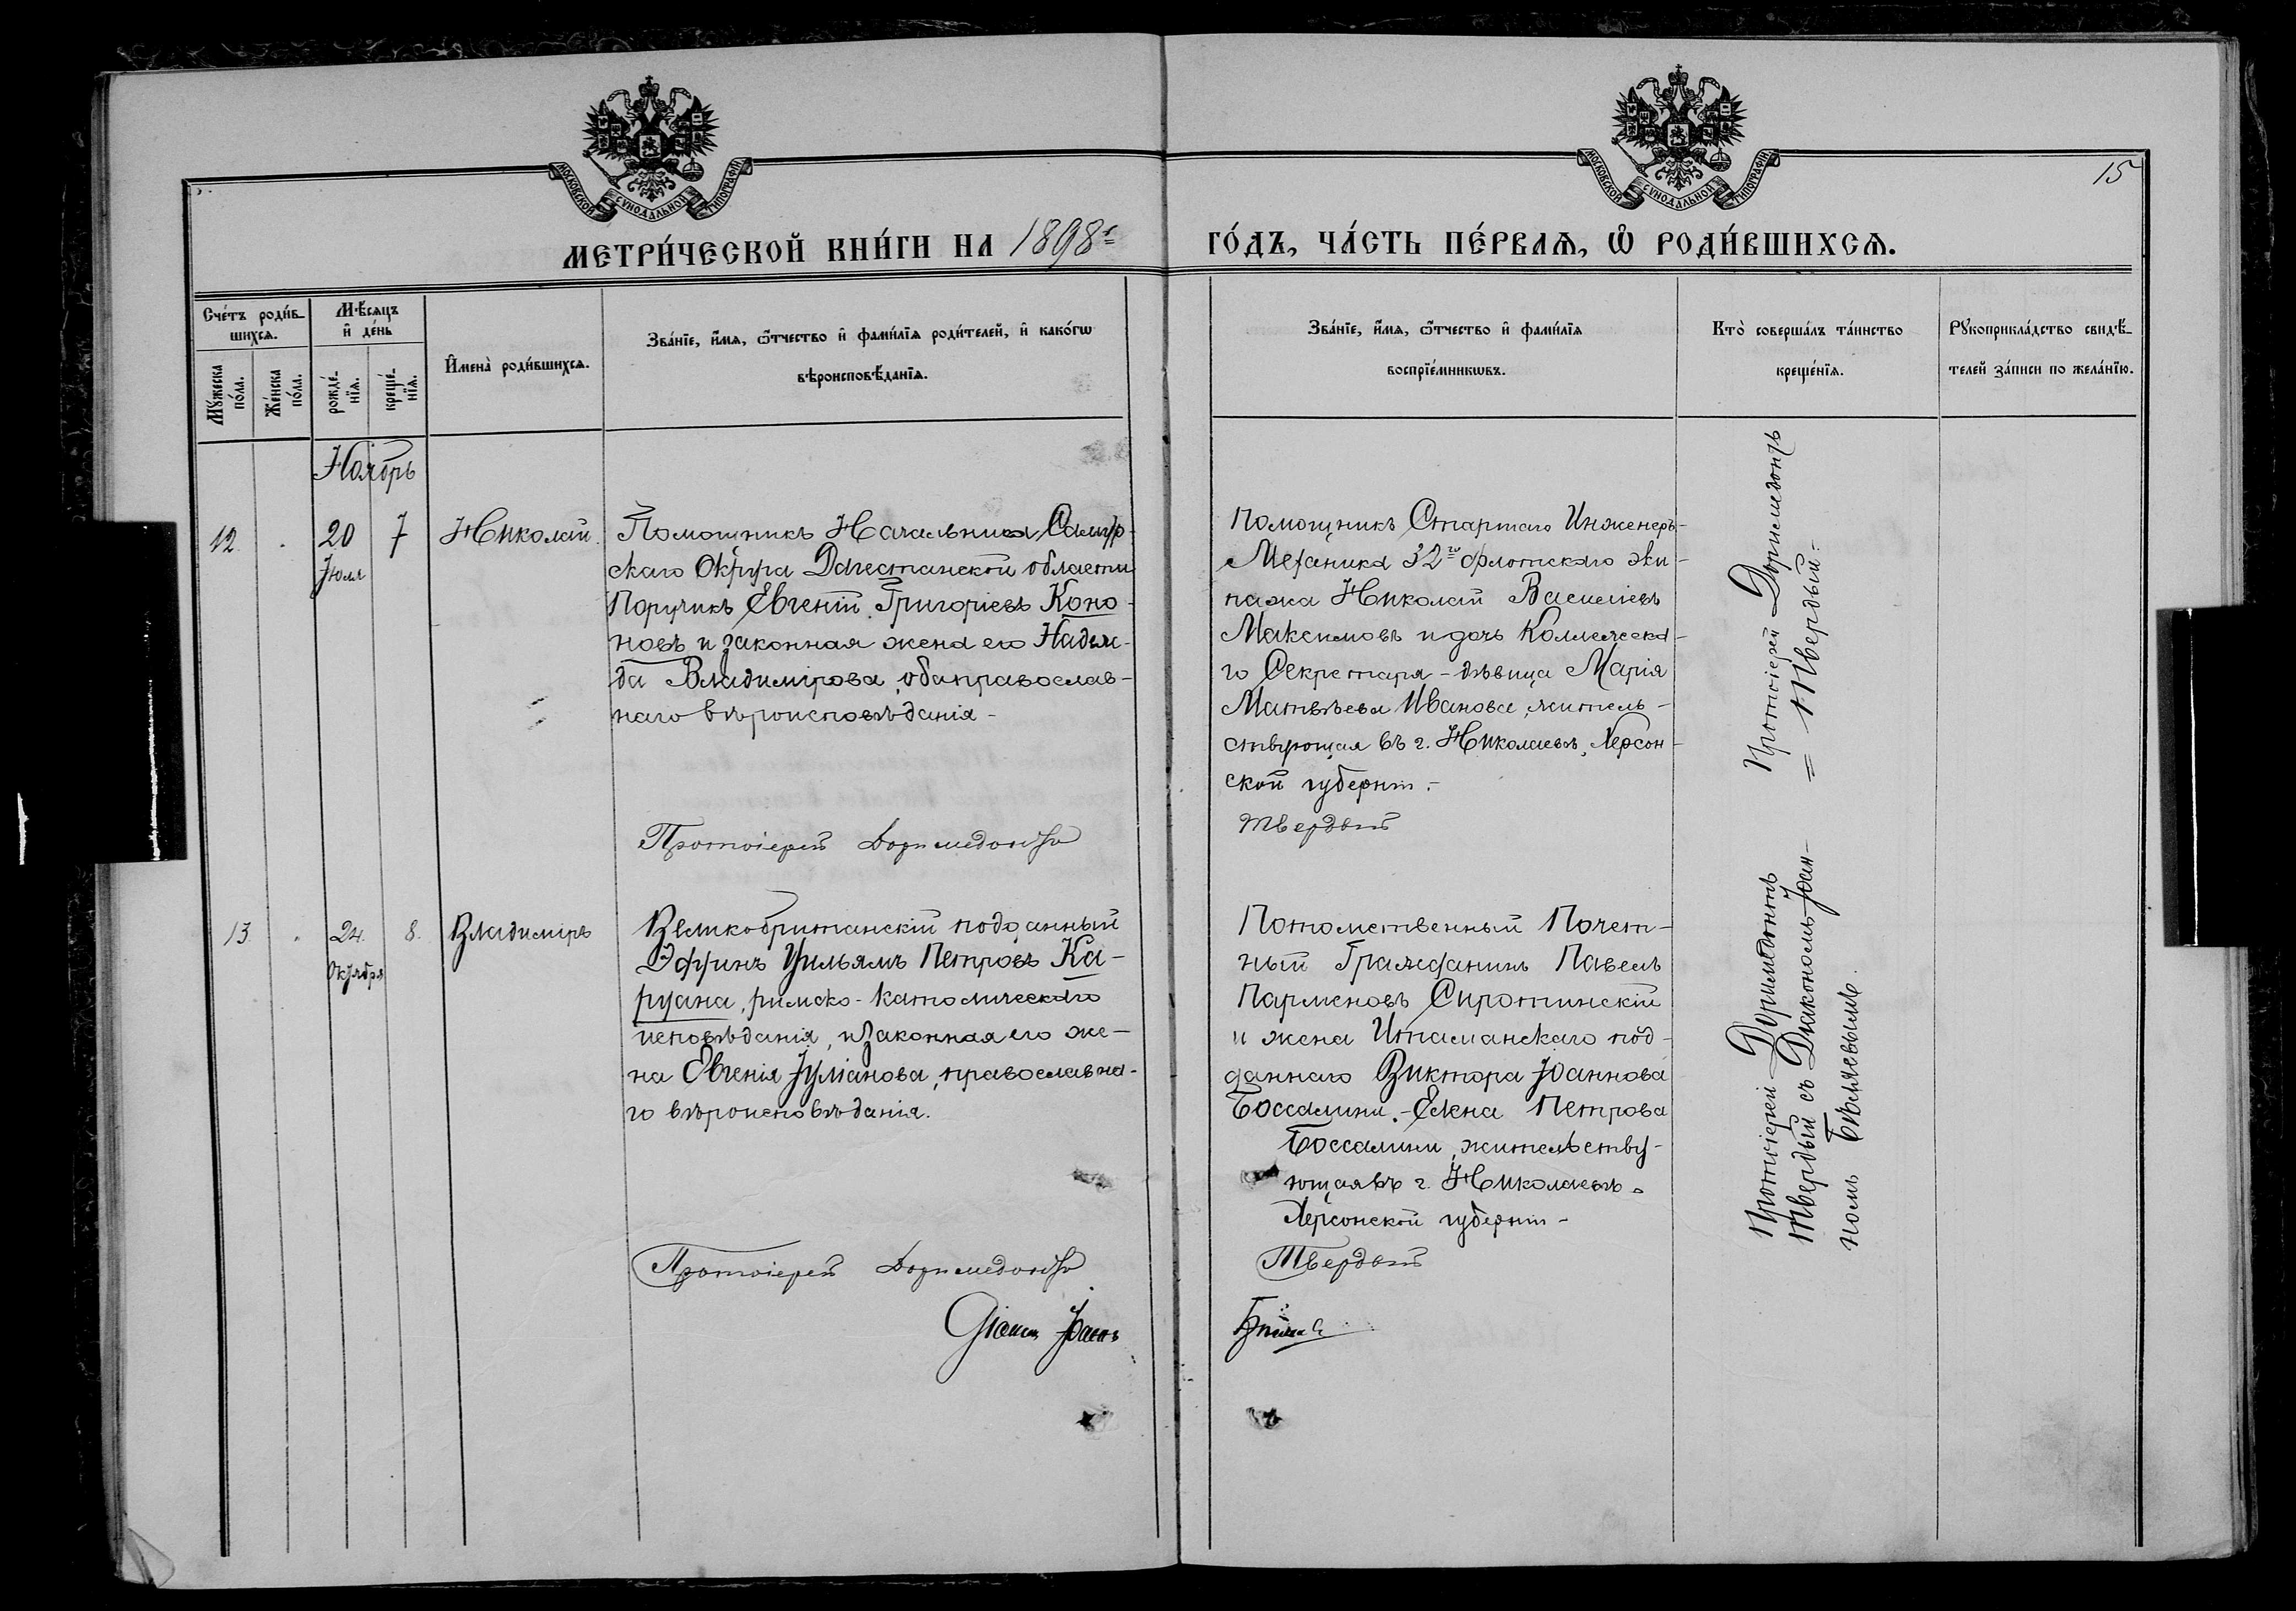 МОСКОВСКОЙ СѴНОДАЛЬНОЙ ТИПОГРАФІИ
МОСКОВСКОЙ СѴНОДАЛЬНОЙ ТИПОГРАФІИ
15
МЕТРИ́ЧЕСКОЙ КНИ́ГИ НА 1898 г
ГО́ДЪ, ЧА́СТЬ ПЕ́РВАѦ, Ѽ РОДИ́ВШИХСѦ.
Сче́тъ роди́в-
шихсѧ.
Мꙋжеска
по́ла.
Же́нска
по́ла.
Мѣ́сѧцъ
и҆ де́нь
рожде́-
нїѧ.
креще́-
нїѧ.
И҆мена̀ роди́вшихсѧ.
Зва́нїе, и҆́мѧ, ѻ҆́тчество и҆ фами́лїѧ роди́телей, и҆ како́гѡ
вѣроисповѣ́данїѧ.
Зва́нїе, и҆́мѧ, ѻ҆́тчество и҆ фами́лїѧ
воспрїе́мникѡвъ.
Кто̀ соверша́лъ та́инство
креще́нїѧ.
Рꙋкоприкла́дство свидѣ́-
телей за́писи по жела́нїю.
Ноябрь
12. 20 7 Николай.
Іюля
Помощникъ Начальника Самур-
скаго Округа Дагестанской области
Поручикъ Евгеній Григоріевъ Коно-
новъ и законная жена его Надеж-
да Владимірова, оба православ-
наго вѣроисповѣданія -
Протоіерей Доримедонтъ
Помощникъ Старшаго Инженеръ-
Механика 32го флотскаго эки-
пажа Николай Васильевъ
Максимовъ и дочь Коллежска-
го Секретаря - дѣвица Марія
Матвѣева Иванова, житель-
ствующая въ г. Николаевѣ, Херсон-
ской губерніи. -
Твердый
Протоіерей Доримедонтъ
= Твердый. -
13. 24. 8. Владиміръ
Октября
Великобританскій подданный
Эффинъ Уильямъ Петровъ Ка-
руана, римско-католическаго
исповѣданія, и законная его же-
на Евгенія Іуліанова, православна-
го вѣроисповѣданія.
Протоіерей Доримедонтъ
Діаконъ Іоаннъ
Потомственный Почет-
ный Гражданинъ Павелъ
Парменовъ Сиротинскій
и жена Италианскаго под-
даннаго Виктора Іоаннова
Боссалини. - Елена Петрова
Боссалини, жительству-
ющая въ г. Николаевѣ
Херсонской губерніи -
Твердый
Бѣляевъ
Протоіерей Доримедонтъ
Твердый съ Діакономъ Іоан-
номъ Бѣляевымъ.